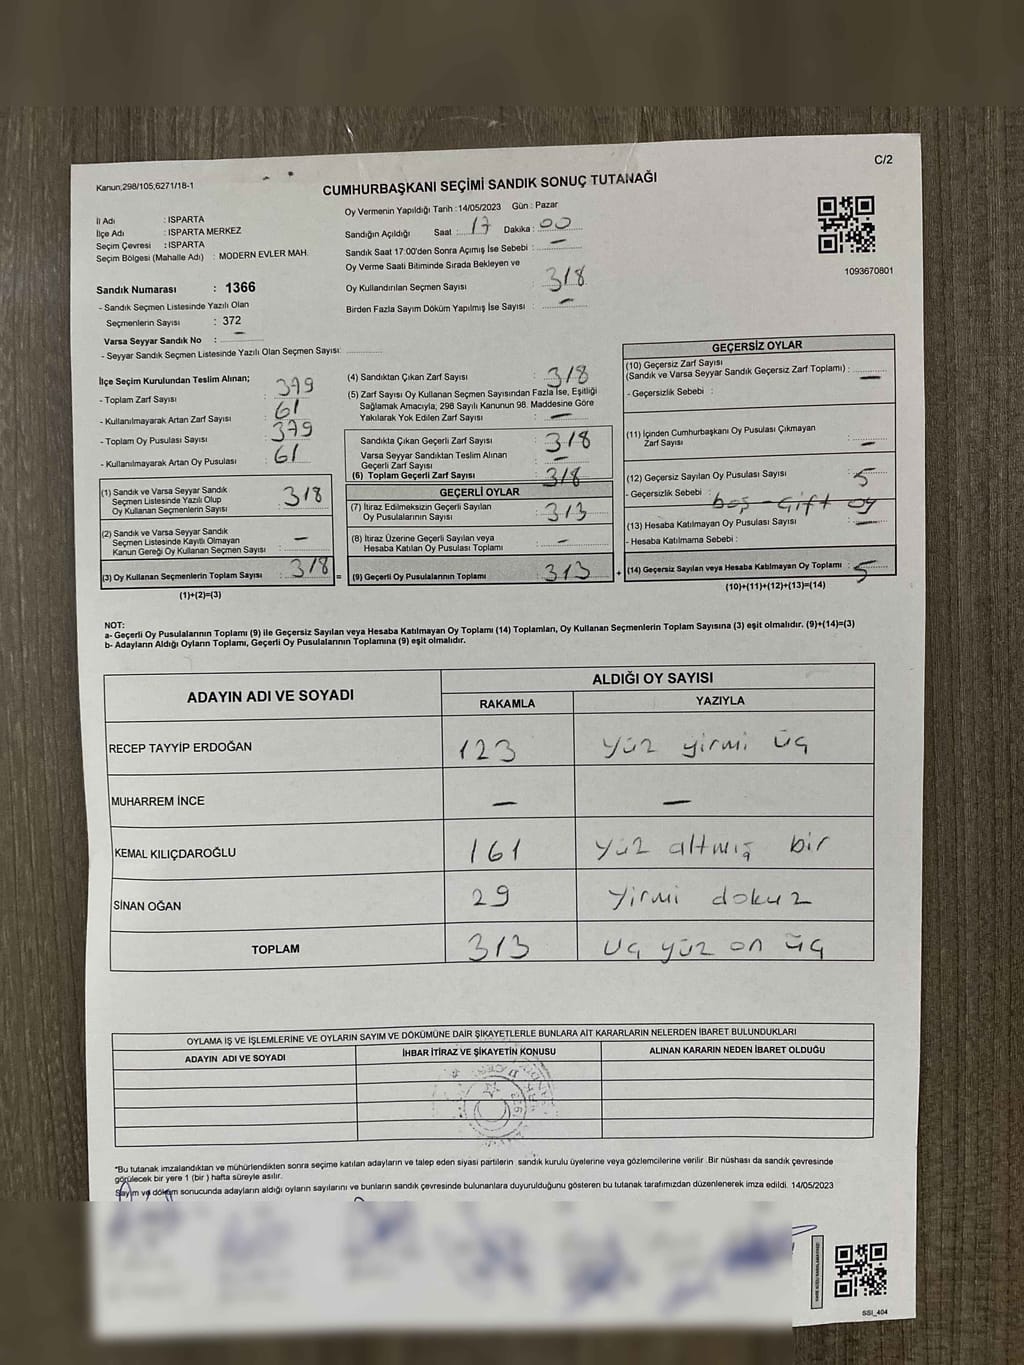 C/2
Kanun,298/105,6271/18-1
CUMHURBAŞKANI SEÇİMİ SANDIK SONUÇ TUTANAĞI
İl Adı : ISPARTA
İlçe Adı : ISPARTA MERKEZ
Seçim Çevresi : ISPARTA
Seçim Bölgesi (Mahalle Adı) : MODERN EVLER MAH.
Sandık Numarası : 1366
- Sandık Seçmen Listesinde Yazılı Olan
Seçmenlerin Sayısı : 372
Varsa Seyyar Sandık No : —
- Seyyar Sandık Seçmen Listesinde Yazılı Olan Seçmen Sayısı:
Oy Vermenin Yapıldığı Tarih :14/05/2023 Gün : Pazar
Sandığın Açıldığı Saat : 17 Dakika : 00
Sandık Saat 17:00'den Sonra Açımış İse Sebebi : —
Oy Verme Saati Bitiminde Sırada Bekleyen ve
Oy Kullandırılan Seçmen Sayısı : 318
Birden Fazla Sayım Döküm Yapılmış İse Sayısı : —
1093670801
İlçe Seçim Kurulundan Teslim Alınan;
- Toplam Zarf Sayısı : 379
- Kullanılmayarak Artan Zarf Sayısı : 61
- Toplam Oy Pusulası Sayısı : 379
- Kullanılmayarak Artan Oy Pusulası : 61
(1) Sandık ve Varsa Seyyar Sandık
Seçmen Listesinde Yazılı Olup
Oy Kullanan Seçmenlerin Sayısı : 318
(2) Sandık ve Varsa Seyyar Sandık
Seçmen Listesinde Kayıtlı Olmayan
Kanun Gereği Oy Kullanan Seçmen Sayısı : —
(3) Oy Kullanan Seçmenlerin Toplam Sayısı : 318
(1)+(2)=(3)
(4) Sandıktan Çıkan Zarf Sayısı : 318
(5) Zarf Sayısı Oy Kullanan Seçmen Sayısından Fazla İse, Eşitliği
Sağlamak Amacıyla, 298 Sayılı Kanunun 98. Maddesine Göre
Yakılarak Yok Edilen Zarf Sayısı : —
Sandıkta Çıkan Geçerli Zarf Sayısı : 318
Varsa Seyyar Sandıktan Teslim Alınan
Geçerli Zarf Sayısı : —
(6) Toplam Geçerli Zarf Sayısı : 318
GEÇERLİ OYLAR
(7) İtiraz Edilmeksizin Geçerli Sayılan
Oy Pusulalarının Sayısı : 313
(8) İtiraz Üzerine Geçerli Sayılan veya
Hesaba Katılan Oy Pusulası Toplamı : —
= (9) Geçerli Oy Pusulalarının Toplamı : 313
GEÇERSİZ OYLAR
(10) Geçersiz Zarf Sayısı
(Sandık ve Varsa Seyyar Sandık Geçersiz Zarf Toplamı) : —
- Geçersizlik Sebebi :
(11) İçinden Cumhurbaşkanı Oy Pusulası Çıkmayan
Zarf Sayısı : —
(12) Geçersiz Sayılan Oy Pusulası Sayısı : 5
- Geçersizlik Sebebi : boş - Çift oy
(13) Hesaba Katılmayan Oy Pusulası Sayısı : —
- Hesaba Katılmama Sebebi :
+ (14) Geçersiz Sayılan veya Hesaba Katılmayan Oy Toplamı : 5
(10)+(11)+(12)+(13)=(14)
NOT:
a- Geçerli Oy Pusulalarının Toplamı (9) ile Geçersiz Sayılan veya Hesaba Katılmayan Oy Toplamı (14) Toplamları, Oy Kullanan Seçmenlerin Toplam Sayısına (3) eşit olmalıdır. (9)+(14)=(3)
b- Adayların Aldığı Oyların Toplamı, Geçerli Oy Pusulalarının Toplamına (9) eşit olmalıdır.
ADAYIN ADI VE SOYADI
ALDIĞI OY SAYISI
RAKAMLA YAZIYLA
RECEP TAYYİP ERDOĞAN 123 yüz yirmi üç
MUHARREM İNCE — —
KEMAL KILIÇDAROĞLU 161 yüz altmış bir
SİNAN OĞAN 29 yirmi dokuz
TOPLAM 313 üç yüz on üç
OYLAMA İŞ VE İŞLEMLERİNE VE OYLARIN SAYIM VE DÖKÜMÜNE DAİR ŞİKAYETLERLE BUNLARA AİT KARARLARIN NELERDEN İBARET BULUNDUKLARI
ADAYIN ADI VE SOYADI İHBAR İTİRAZ VE ŞİKAYETİN KONUSU ALINAN KARARIN NEDEN İBARET OLDUĞU
*Bu tutanak imzalandıktan ve mühürlendikten sonra seçime katılan adayların ve talep eden siyasi partilerin sandık kurulu üyelerine veya gözlemcilerine verilir .Bir nüshası da sandık çevresinde
görülecek bir yere 1 (bir ) hafta süreyle asılır.
Sayım ve döküm sonucunda adayların aldığı oyların sayılarını ve bunların sandık çevresinde bulunanlara duyurulduğunu gösteren bu tutanak tarafımızdan düzenlenerek imza edildi. 14/05/2023
SSI_404